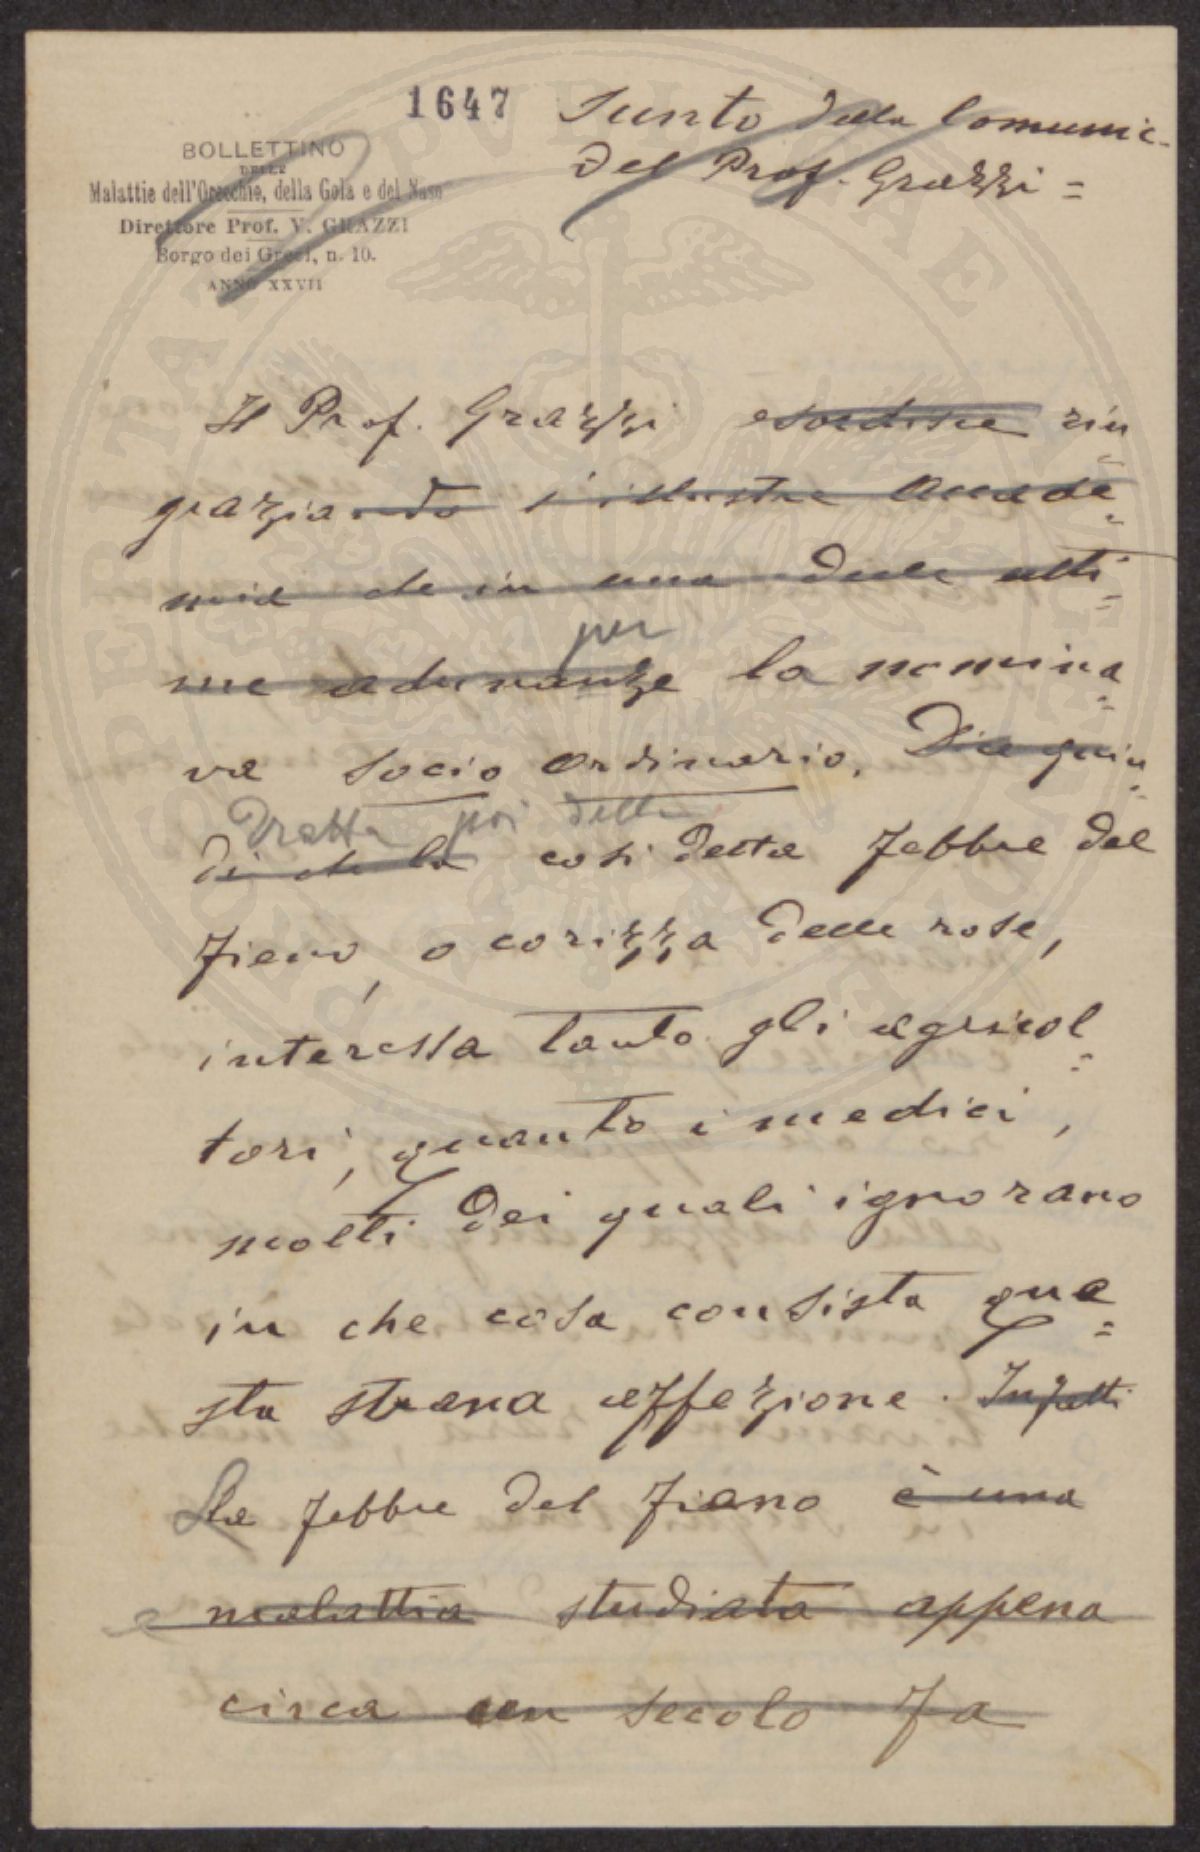 1647
Sunto della Comunic-
del Prof. Grazzi =
BOLLETTINO
DELLE
Malattie dell'Orecchio, della Gola e del Naso
Direttore Prof. V. GRAZZI
Borgo dei Greci, n. 10.
ANNO XXVII
Il Prof. Grazzi esordisce rin
graziando l'illustre Accade=
mia che in una delle ulti=
per
me adunanze la nomina=
va socio ordinario. Dice quin=
Tratta poi della
di che la così detta febbre del
fieno, o corizza delle rose,
interessa tanto gli agricol=
tori, quanto i medici,
molti dei quali ignorano
in che cosa consista que=
sta strana affezione. Infatti
La febbre del fieno è una
malattia studiata appena
circa un secolo fa